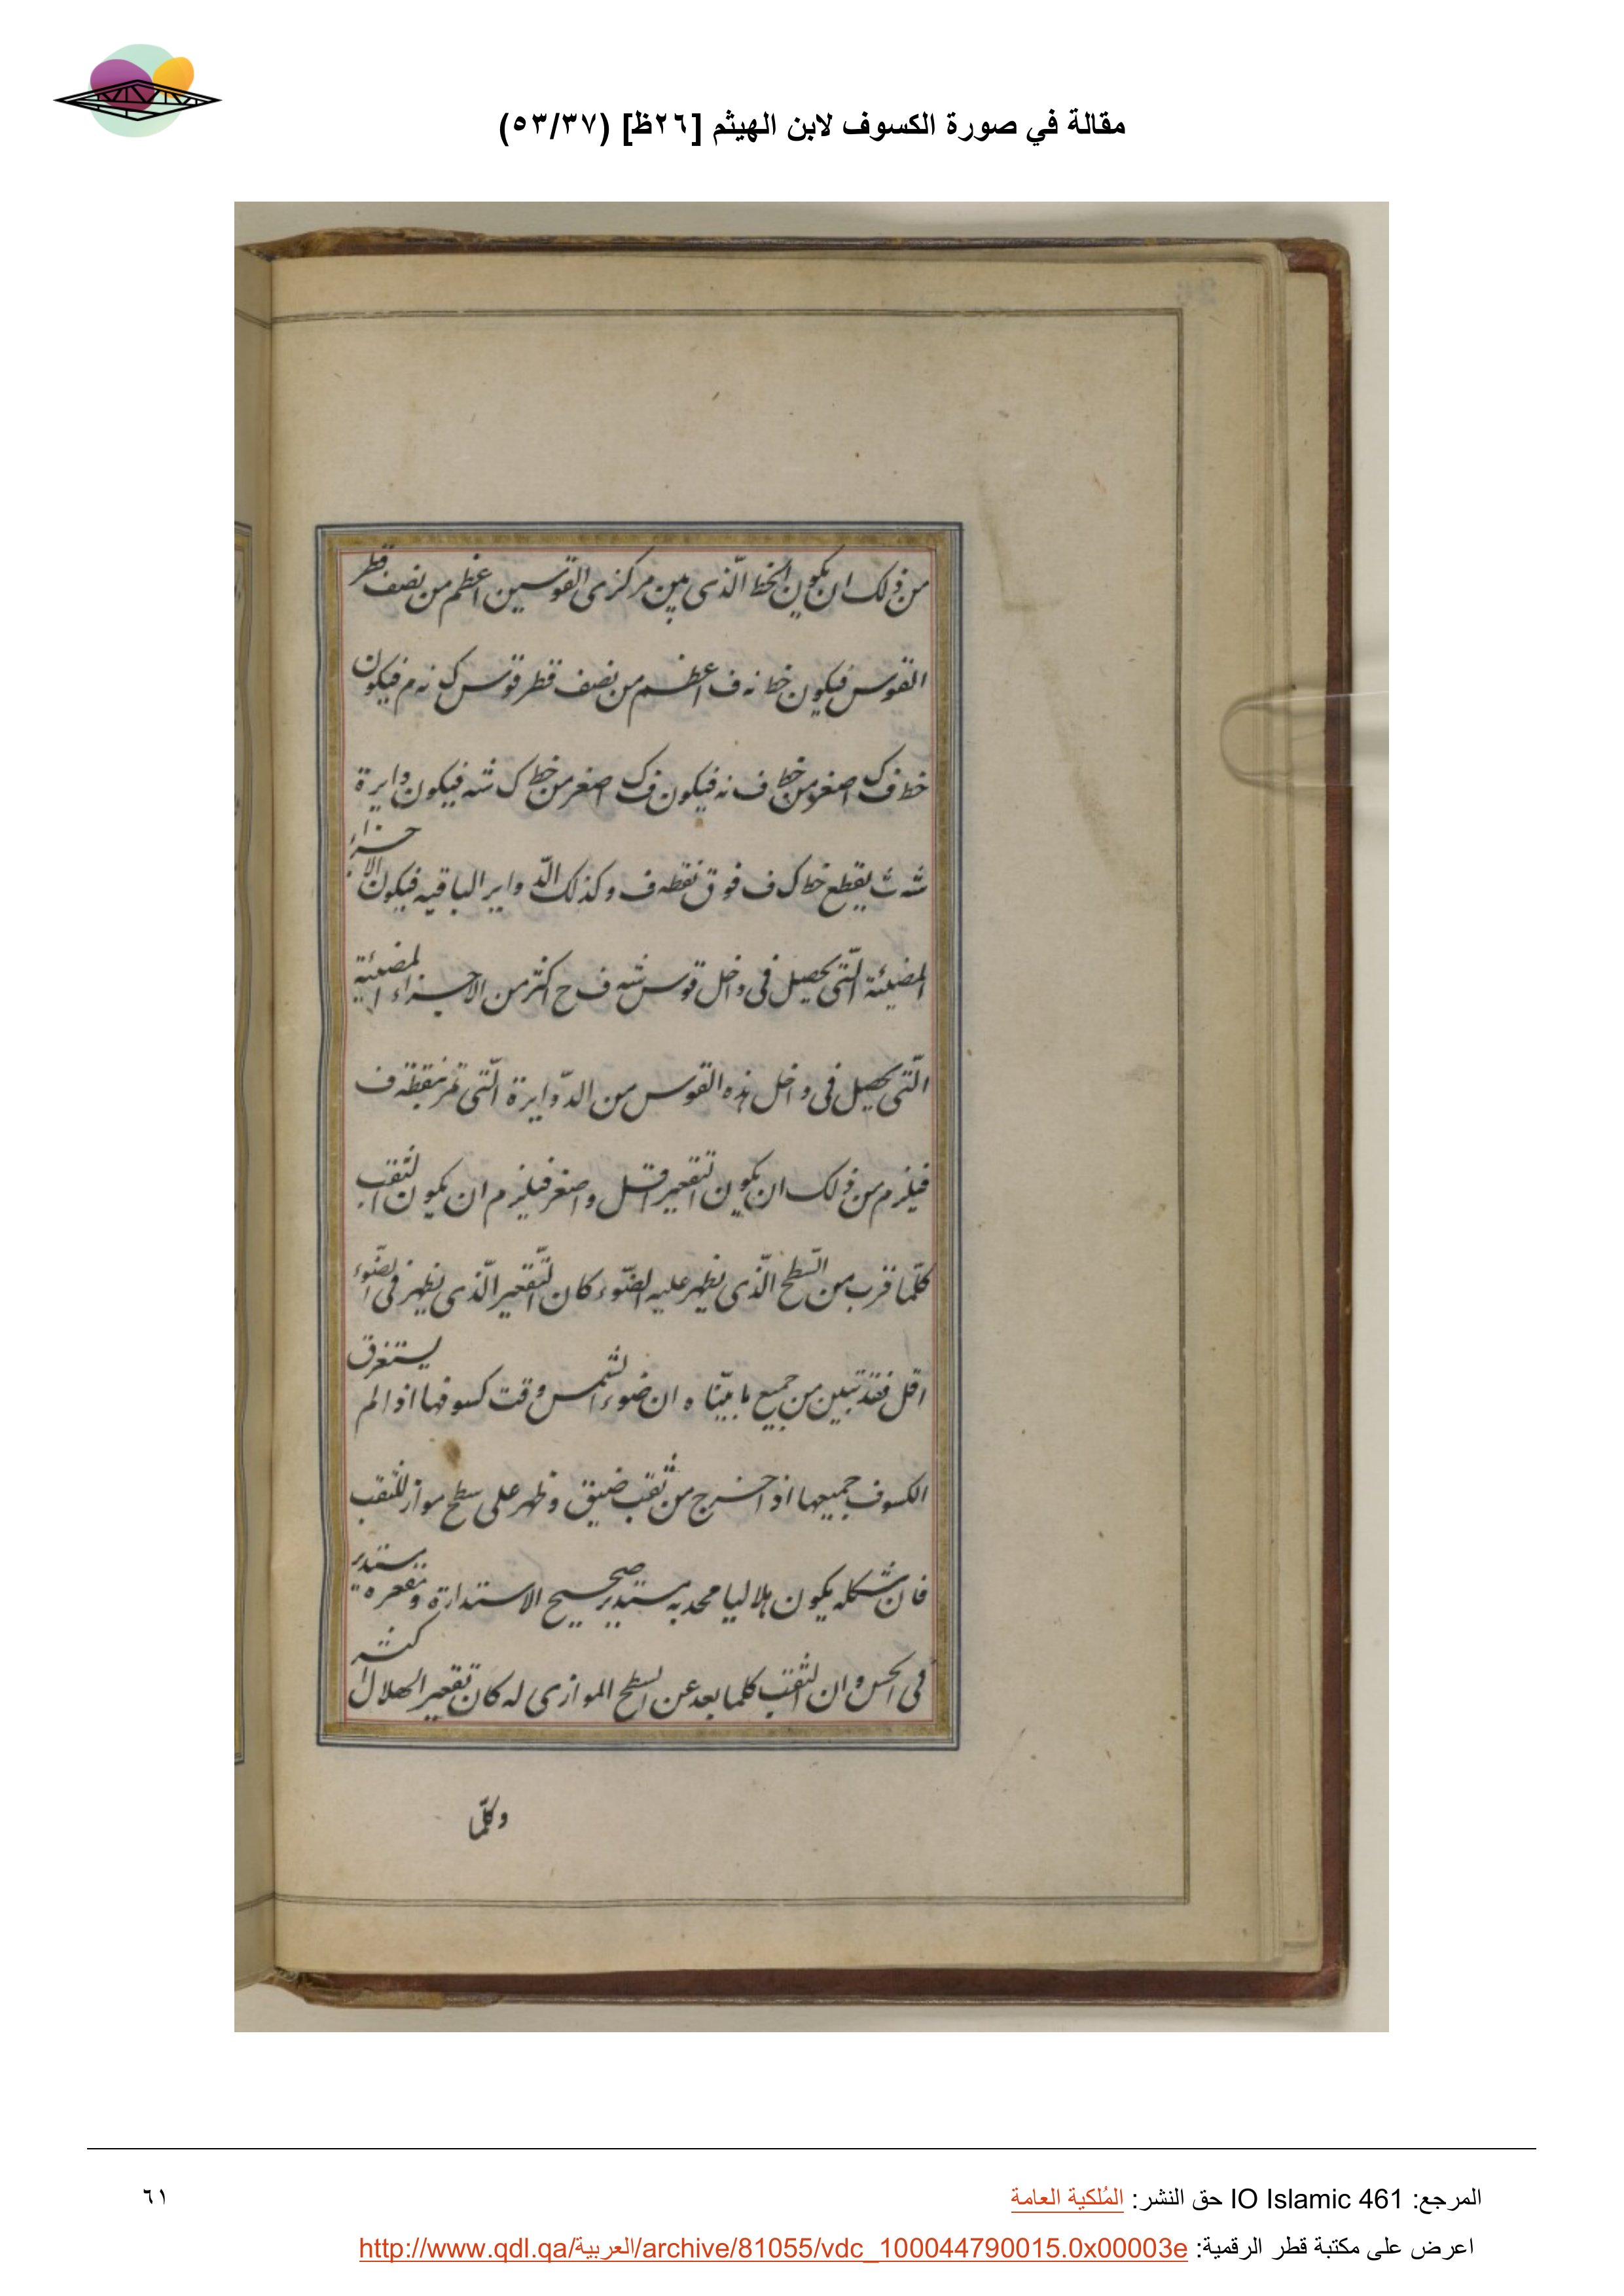 مقالة في صورة الكسوف لابن الهيثم [٢٦ظ] (٥٣/٣٧)
من ذلك ان يكون الخط الّذى بين مركزى القوسين اعظم من نصف قطر
القوس فيكون خط نه ف اعظم من نصف قطر قوس ك نه م فيكون
خط ف ك اصغر من خط ف نه فيكون ف ك اصغر من خط ك شه فيكون دايرة
شه ث يقطع خط ك ف فوق نقطه ف وكذلك الدّواير الباقيه فيكون الاجزاء
المضيئة الّتى يحصل فى داخل قوس شه ف ح اكثر من الاجزاء المضيئية
الّتى يحصل فى داخل هذه القوس من الدّوايرة الّتى تمر بنقطه ف
فيلزم من ذلك ان يكون التقعير اقل واصغر فيلزم ان يكون الثقب
كلّما قرب من السّطح الّذى يظهر عليه الضّوء كان التّقعير الّذى يظهر فى الضّوء
اقل فقد تبين من جميع ما بيّناه ان ضوء الشمس وقت كسوفها اذا لم يستغرق
الكسوف جميعها اذا خرج من ثقب ضيق وظهر على سطح مواز للثقب
فان شكله يكون هلاليا محدبه مستدير صحيح الاستدارة وتقعره مستدير
فى الحس وان الثقب كلما بعد عن السطح الموازى له كان تقعير الهلال اكثر
وكلّما
المرجع: IO Islamic 461 حق النشر: المُلكية العامة
٦١
اعرض على مكتبة قطر الرقمية: http://www.qdl.qa/العربية/archive/81055/vdc_100044790015.0x00003e